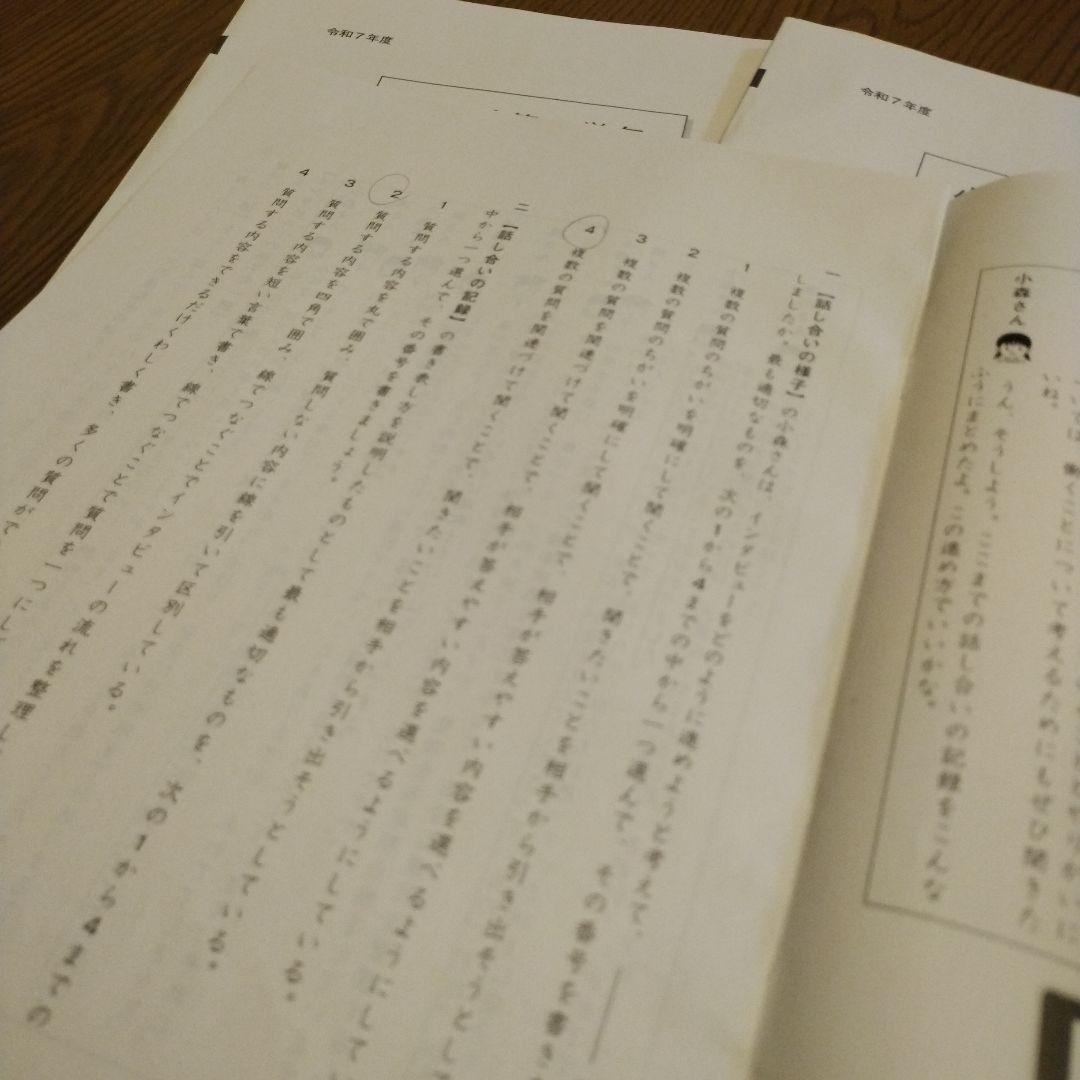 令和7年度
令和7年度
小森さん
いね。
うん、そうしよう。ここまでの話し合いの記録をこんな
ふうにまとめたよ。この進め方でいいかな。
一 【話し合いの様子】の小森さんは、インタビューをどのように進めようと考えて
しましたか。最も適切なものを、次の1から4までの中から一つ選んで、その番号を書き
1 複数の質問のちがいを明確にして聞くことで、聞きたいことを相手から引き出そうとし
2 複数の質問のちがいを明確にして聞くことで、相手が答えやすい内容を選べるようにして
3 複数の質問を関連づけて聞くことで、相手が答えやすい内容を選べるようにしている。
4 複数の質問を関連づけて聞くことで、聞きたいことを相手から引き出そうとしている。
二 【話し合いの記録】の書き表し方を説明したものとして最も適切なものを、次の1から4までの
中から一つ選んで、その番号を書きましょう。
1 質問する内容を丸で囲み、質問しない内容に線を引いて区別している。
2 質問する内容を四角で囲み、線でつなぐことでインタビューの流れを整理し
3 質問する内容を短い言葉で書き、線でつなぐことで質問を一つにし
4 質問する内容をできるだけくわしく書き、多くの質問がで